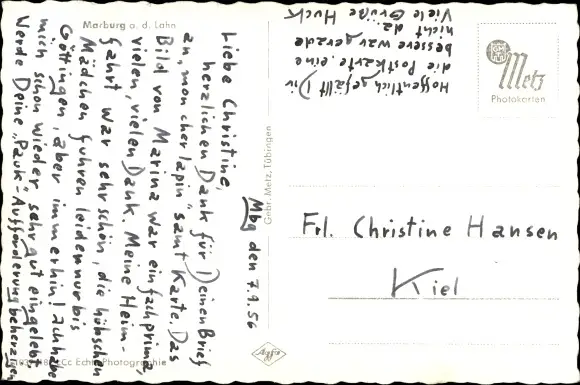 Marburg a. d. Lahn
Mbg den 7.9.56
Liebe Christine,
herzlichen Dank für Deinen Brief
an „mon cher lapin" samt Karte. Das
Bild von Marina war einfach prima,
vielen, vielen Dank. Meine Heim-
fahrt war sehr schön, die hübschen
Mädchen fuhren leider nur bis
Göttingen, aber immerhin! Ich habe
mich schon wieder sehr gut eingelebt.
Werde Deine „Pauk"-Aufforderung beherzigen
Hoffentlich gefällt Dir
die Postkarte, eine
bessere war gerade
nicht da.
Viele Grüße Huck
Gebr. Metz, Tübingen
Metz
Photokarten
Frl. Christine Hansen
Kiel
Agfa
Cc Echte Photographie